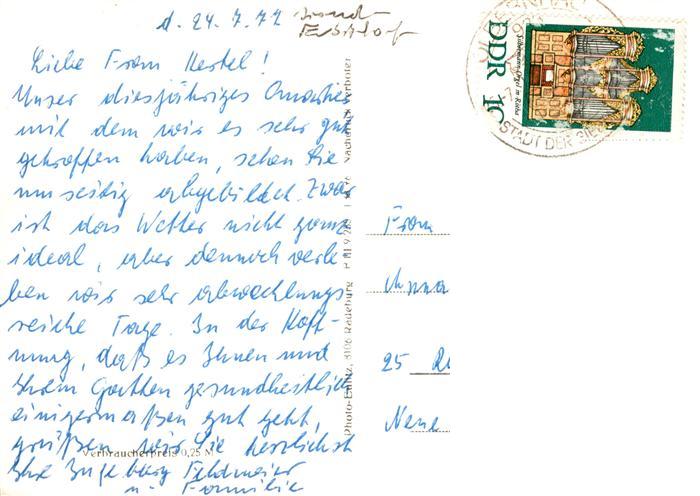 d. 24.7.77
Liebe Frau Hertel!
Unser diesjähriges Quartier
mit dem wir es sehr gut
getroffen haben, sehen Sie
umseitig abgebildet. Zwar
ist das Wetter nicht ganz
ideal, aber dennoch verle
ben wir sehr abwechlungs-
reiche Tage. In der Hoff-
nung, daß es Ihnen und
Ihrem Gatten gesundheitlich
einigermaßen gut geht,
grüßen wir Sie herzlichst
Ihre Ingeburg Feldmeier
u. Familie
Verbraucherpreis 0,25 M
Photo-Em 8106 Radeburg
Nachdruck verboten
DDR
Silbermann-Orgel in Rötha
STADT DER
Frau
Anna
25
Neue